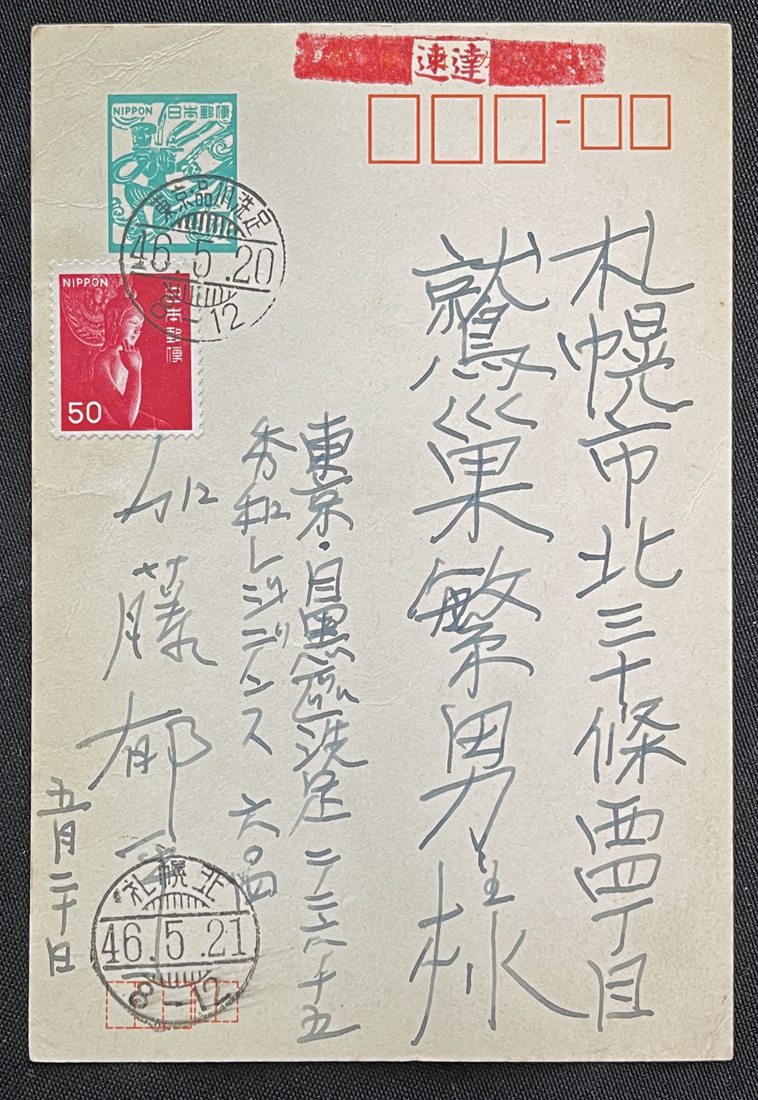 速達
NIPPON 日本郵便
東京・品川洗足
46.5.20
8-12
NIPPON
日本郵便
50
札幌市北三十條西四丁目
鷲巢繁男様
東京・目黒區洗足
秀和レジデンス 六〇四
加藤郁乎
五月二十日
札幌北
46.5.21
8-12